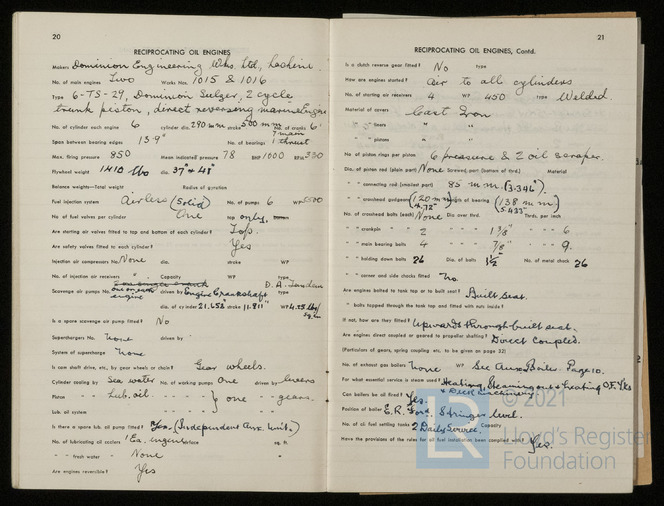 20
RECIPROCATING OIL ENGINES
Makers Dominion Engineering Wks. Ltd, Lachine.
No. of main engines Two Works Nos. 1015 & 1016
Type 6-TS-29, Dominion Sulzer, 2 cycle
trunk piston, direct reversing marine Engine
No. of cylinders each engine 6 cylinder dia. 290 mm stroke 500 mm No. of cranks 6
Span between bearing edges 13.9" No. of bearings 7 main 1 thrust
Max. firing pressure 850 Mean indicated pressure 78 BHP 1000 RPM 330
Flywheel weight 1410 lbs dia. 37" & 48"
Balance weights—Total weight Radius of gyration
Fuel injection system Airless (Solid) No. of pumps 6 WP
No. of fuel valves per cylinder One top only,
Are starting air valves fitted to top and bottom of each cylinder? Top.
Are safety valves fitted to each cylinder? Yes
Injection air compressors No. None dia. stroke WP
No. of injection air receivers dia. Capacity WP type
Scavenge air pumps No. one on each engine driven by Engine Crankshaft type D.A. Tandem
dia. of cylinder 21.653 stroke 11.811" WP 4.25 lbs/ sq. in
Is a spare scavenge air pump fitted? No
Superchargers No. None driven by
System of supercharge None
Is cam shaft drive, etc., by gear wheels or chain? Gear wheels.
Cylinder cooling by Sea water No. of working pumps One driven by levers
Piston " " Lub. oil " " } one " " gears.
Lub. oil system
Is there a spare lub. oil pump fitted? Yes. (Independent Aux. Unit.)
No. of lubricating oil coolers 1 Ea. engine surface sq. ft.
" " fresh water " None
Are engines reversible? Yes
21
RECIPROCATING OIL ENGINES, Contd.
Is a clutch reverse gear fitted? No type
How are engines started? Air to all cylinders
No. of starting air receivers 4 WP 450 type Welded.
Material of covers Cast Iron
" " liners " "
" " pistons " "
No. of piston rings per piston 6 pressure & 2 oil scraper.
Dia. of piston rod (plain part) None Screwed part (bottom of thrd.) Material
" " connecting rod (smallest part) 85 mm. (3.346").
" " crosshead gudgeon (120 mm 4.72") length of bearing (138 mm) 5.433"
No. of crosshead bolts (each) None Dia. over thrd. Thrds. per inch
" " crankpin " 2 " " 1 3/8" " " 6
" " main bearing bolts 4 " " 7/8" " " 9.
" " holding down bolts 26 Dia. of bolts 1 1/2" No. of metal chock 26
" " corner and side chocks fitted No.
Are engines bolted to tank top or to built seat? Built seat.
" bolts tapped through the tank top and fitted with nuts inside?
If not, how are they fitted? Upwards through built seat.
Are engines direct coupled or geared to propeller shafting? Direct Coupled.
(Particulars of gears, spring coupling etc. to be given on page 22)
No. of exhaust gas boilers None WP See Aux. Boiler. Page 10.
For what essential service is steam used? Heating, Steaming out & heating O.F. Tks
& Deck Machinery
Can boilers be oil fired? Yes.
Position of boiler E.R. Ford. Stringer level.
No. of oil fuel settling tanks 2 Daily Service. Capacity
Have the provisions of the rules for oil fuel installation been complied with? Yes.
© 2021
Lloyd's Register
Foundation
LR